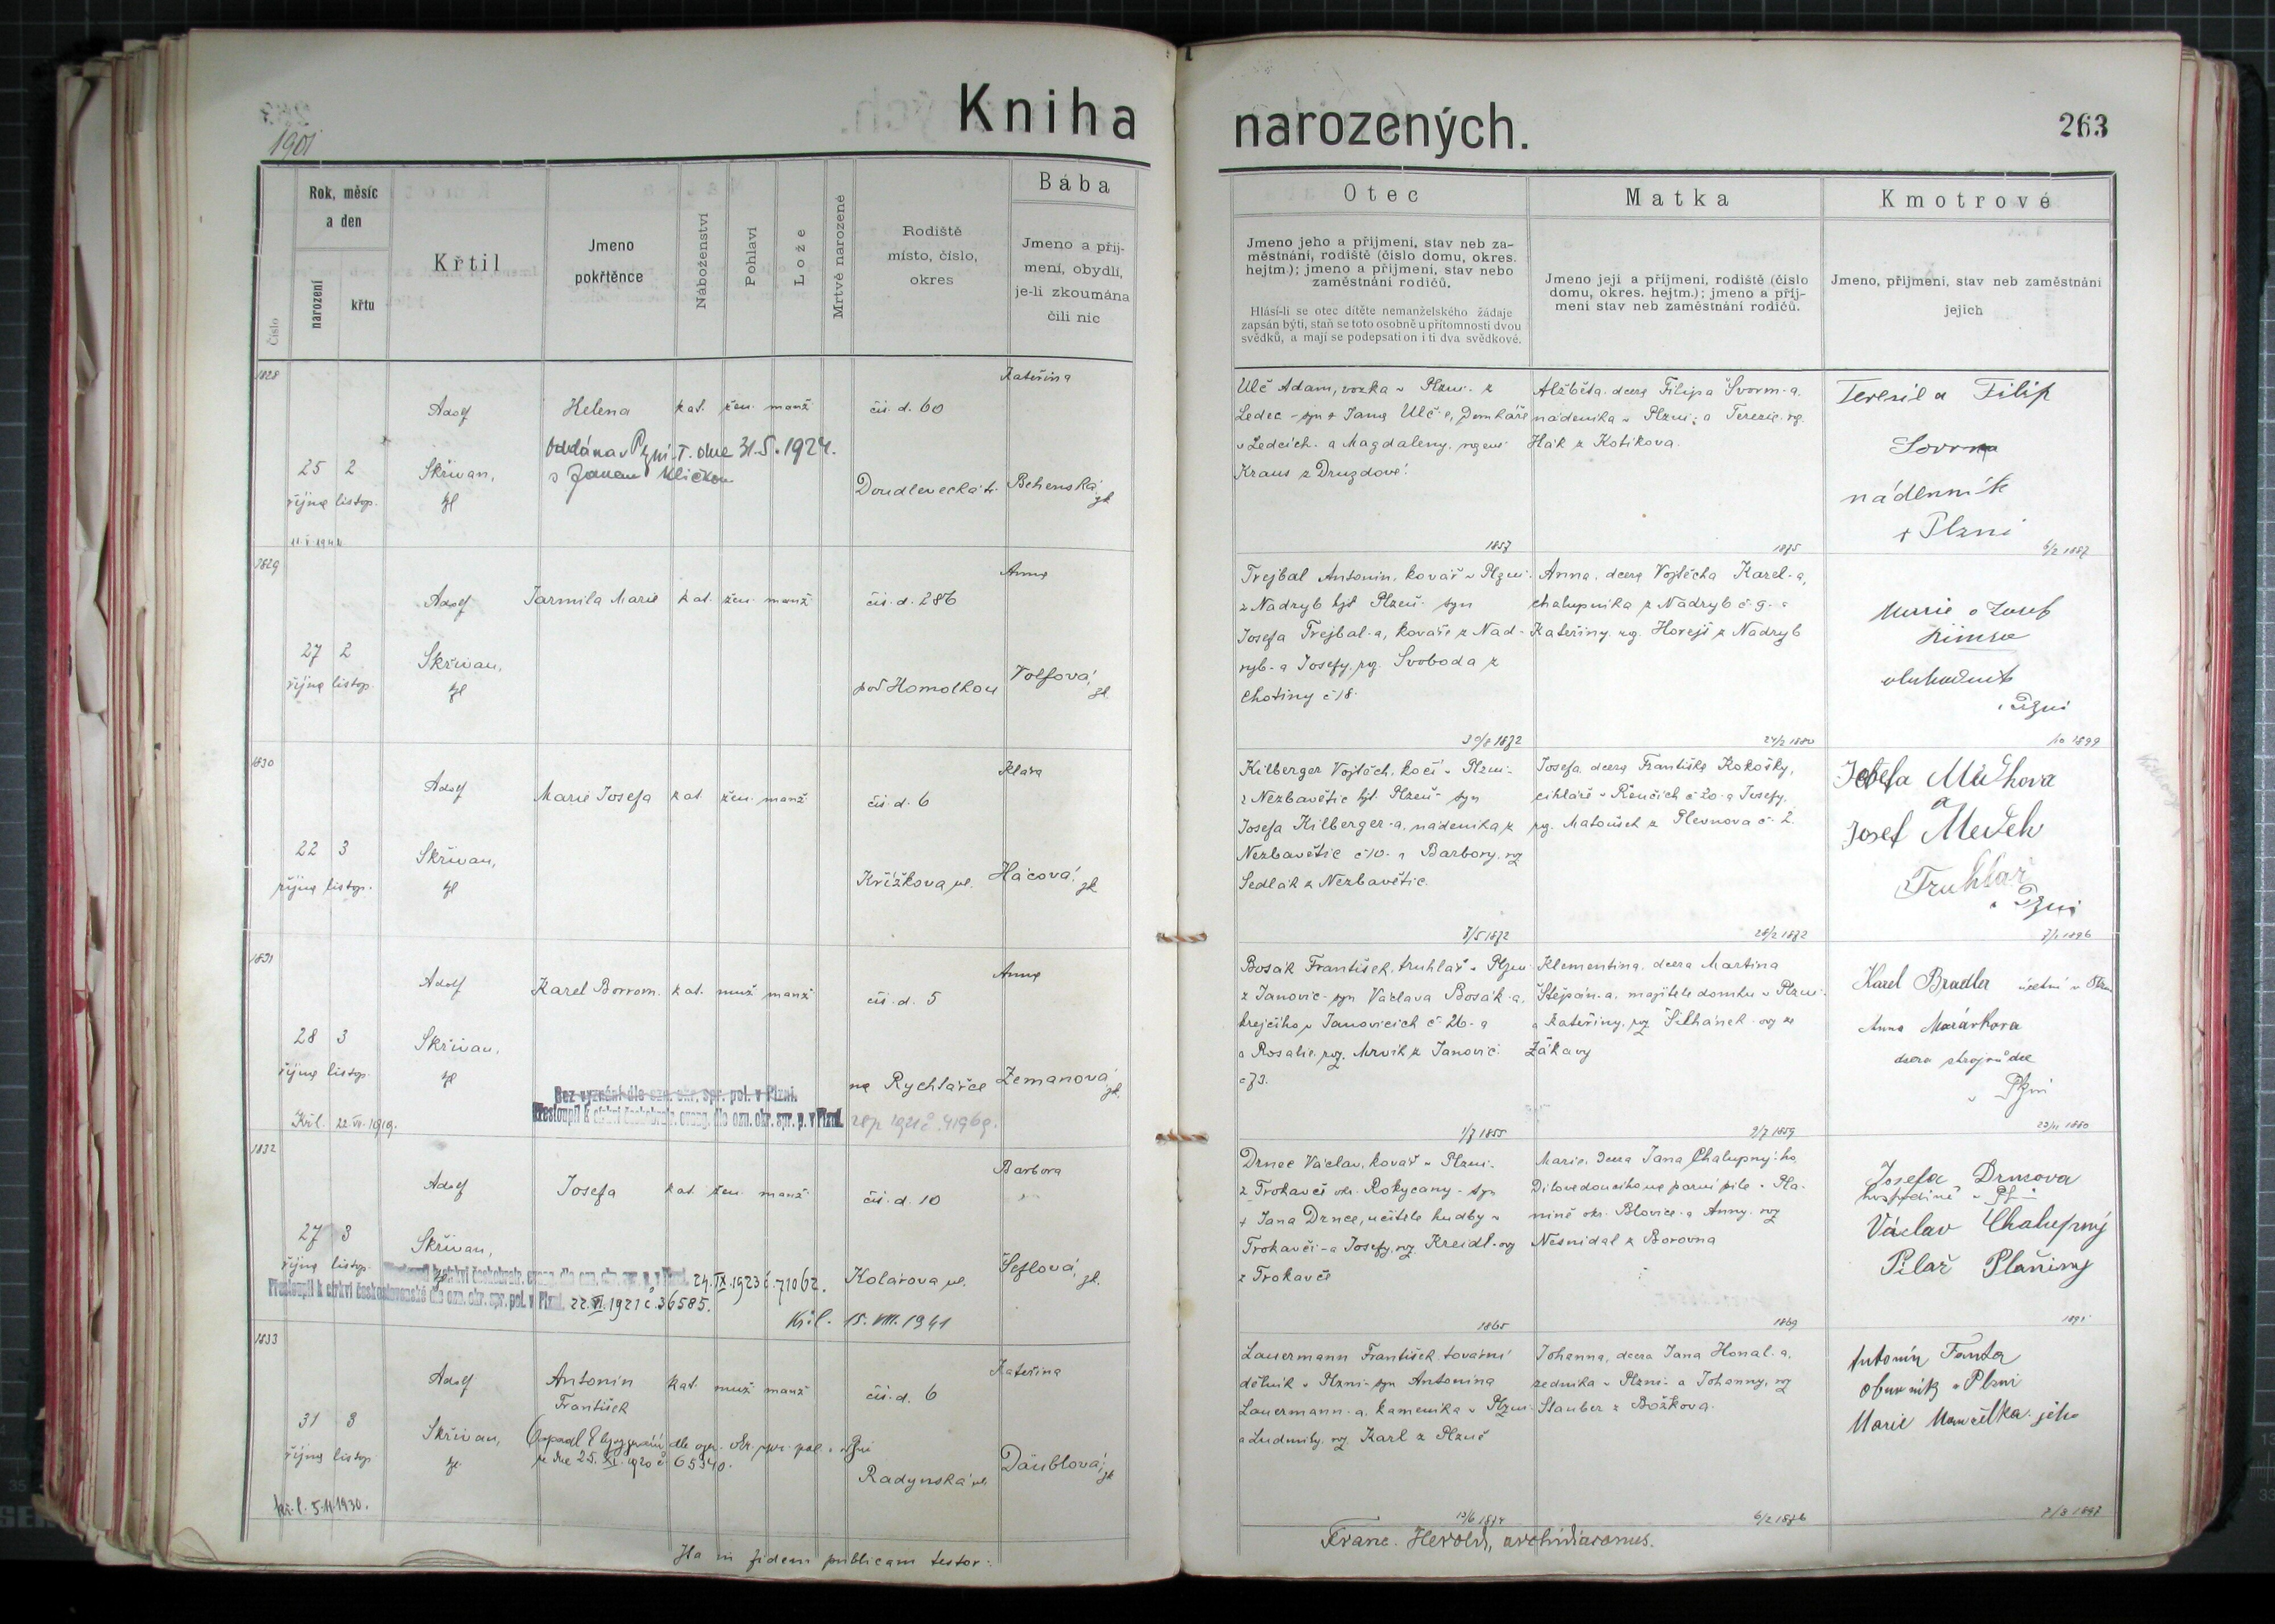 Kniha narozených.
263
1901
Číslo
Rok, měsíc
a den
narození
křtu
Křtil
Jmeno
pokřtěnce
Náboženství
Pohlaví
Lože
Mrtvě narozené
Rodiště
místo, číslo,
okres
Bába
Jmeno a příj-
mení, obydlí,
je-li zkoumána
čili nic
Otec
Jmeno jeho a příjmení, stav neb za-
městnání, rodiště (číslo domu, okres.
hejtm.); jmeno a příjmení, stav nebo
zaměstnání rodičů.
Hlásí-li se otec dítěte nemanželského žádaje
zapsán býti, staň se toto osobně u přítomnosti dvou
svědků, a mají se podepsati on i ti dva svědkové.
Matka
Jmeno její a příjmení, rodiště (číslo
domu, okres. hejtm.); jmeno a příj-
mení stav neb zaměstnání rodičů.
Kmotrové
Jmeno, příjmení, stav neb zaměstnání
jejich
1828
25 října
2 listop.
Adolf
Skřivan,
Helena
kat. žen. manž
čís. d. 60
Doudlevecká tř.
Kateřina
Behenská
Oddána v Plzni I. dne 31.5.1924.
s Janem Kličkou
Ulč Adam, vozka v Plzni z
Ledec - syn + Jana Ulč-e, domkáře
v Ledcích a Magdaleny, rozené
Kraus z Druzdové.
1857
Alžběta, dcera Filipa Švorm-a,
nádeníka v Plzni a Terezie roz.
Hák z Kotíkova.
1875
Teresie a Filip
nádenník
v Plzni
6/2 1887
1829
27 října
2 listop.
Adolf
Skřivan,
Jarmila Marie
kat. žen. manž
čís. d. 286
pod Homolkou
Anna
Volfová
Trejbal Antonín, kovář v Plzni
z Nadryb hjt Plzeň - syn
Josefa Trejbal-a, kováře z Nad-
ryb - a Josefy, roz. Svoboda z
Chotiny č 18.
Anna, dcera Vojtěcha Karel-a,
chalupníka z Nadryb č. 9. a
Kateřiny roz. Horejš z Nadryb
24/2 1880
Marie a Josef
v Plzni
1830
22 října
3 listop.
Adolf
Skřivan,
Marie Josefa
kat. žen. manž
čís. d. 6
Křížkova ul.
Klára
Hácová
Kilberger Vojtěch, kočí v Plzni -
z Nezbavětic hjt. Plzeň - syn
Josefa Kilberger-a, nádeníka z
Nezbavětic č 10. a Barbory, roz
Sedlák z Nezbavětic.
8/5 1872
Josefa, dcera Františka Kokošky,
cihláře v Řenčích č 20 a Josefy,
roz. Matoušek z Plevnova č. 2.
28/2 1872
Josef
Truhlář
v Plzni
1831
28 října
3 listop.
Adolf
Skřivan,
Karel Borrom.
kat. muž manž
čís. d. 5
na Rychtářce
Anna
Zemanová
Bez vyznání dle ozn. okr. spr. pol. v Plzni.
Přestoupil k církvi českobratr. evang. dle ozn. okr. spr. p. v Plzni.
22. VI. 1919.
Bosák František, truhlář v Plzni
z Janovic - syn Václava Bosák-a,
krejčího v Janovicích č. 26 - a
a Rosalie, roz. Mrvík z Janovic
č 73.
1/7 1855
Klementina, dcera Martina
Štěpán-a, majitele domku v Plzni
a Kateřiny, roz Silhánek-ovy ze
Žákavy
9/7 1859
Karel Bradler účetní v Plzni
Anna
dcera strojvůdce
v Plzni
1832
27 října
3 listop.
Adolf
Skřivan,
Josefa
kat. žen. manž
čís. d. 10
Kolárova ul.
Barbora
Šeflová
Přestoupil k církvi českobratr. evang. dle ozn. okr. spr. p. v Plzni. 24. IX. 1923 č. 71062.
Přestoupil k církvi československé dle ozn. okr. spr. pol. v Plzni. 22. VI. 1921 č. 36585.
Kř. l. 15. VIII. 1941
Drnec Václav, kovář v Plzni -
z Trokavče okr. Rokycany - syn
+ Jana Drnce, učitele hudby v
Trokavči - a Josefy, roz. Kreidl-ovy
z Trokavče
1865
Marie, dcera Jana Chalupný-ho
Dílovedoucího na parní pile v Pla-
nině okr. Blovice a Anny, roz
Nesnídal z Borovna
1869
Josefa Drncova
Václav Chalupný
Pilař
1833
31 října
3 listop.
Adolf
Skřivan,
Antonín
František
kat. muž manž
čís. d. 6
Radynská ul.
Kateřina
Däublová
ze dne 25. XI. 1920 č 65340.
kř. l. 5.11.1930.
Lauermann František, tovární
dělník v Plzni - syn Antonína
Lauermann-a, kameníka v Plzni
a Ludmily, roz Karl z Plzně
Johanna, dcera Jana Honal-a,
zedníka v Plzni - a Johanny, roz
Stauber z Božkova.
6/2 1876
Antonín Fanta
obuvník v Plzni
Marie manželka jeho
Ita in fidem publicam testor:
Franc. Herold, archidiaconus.